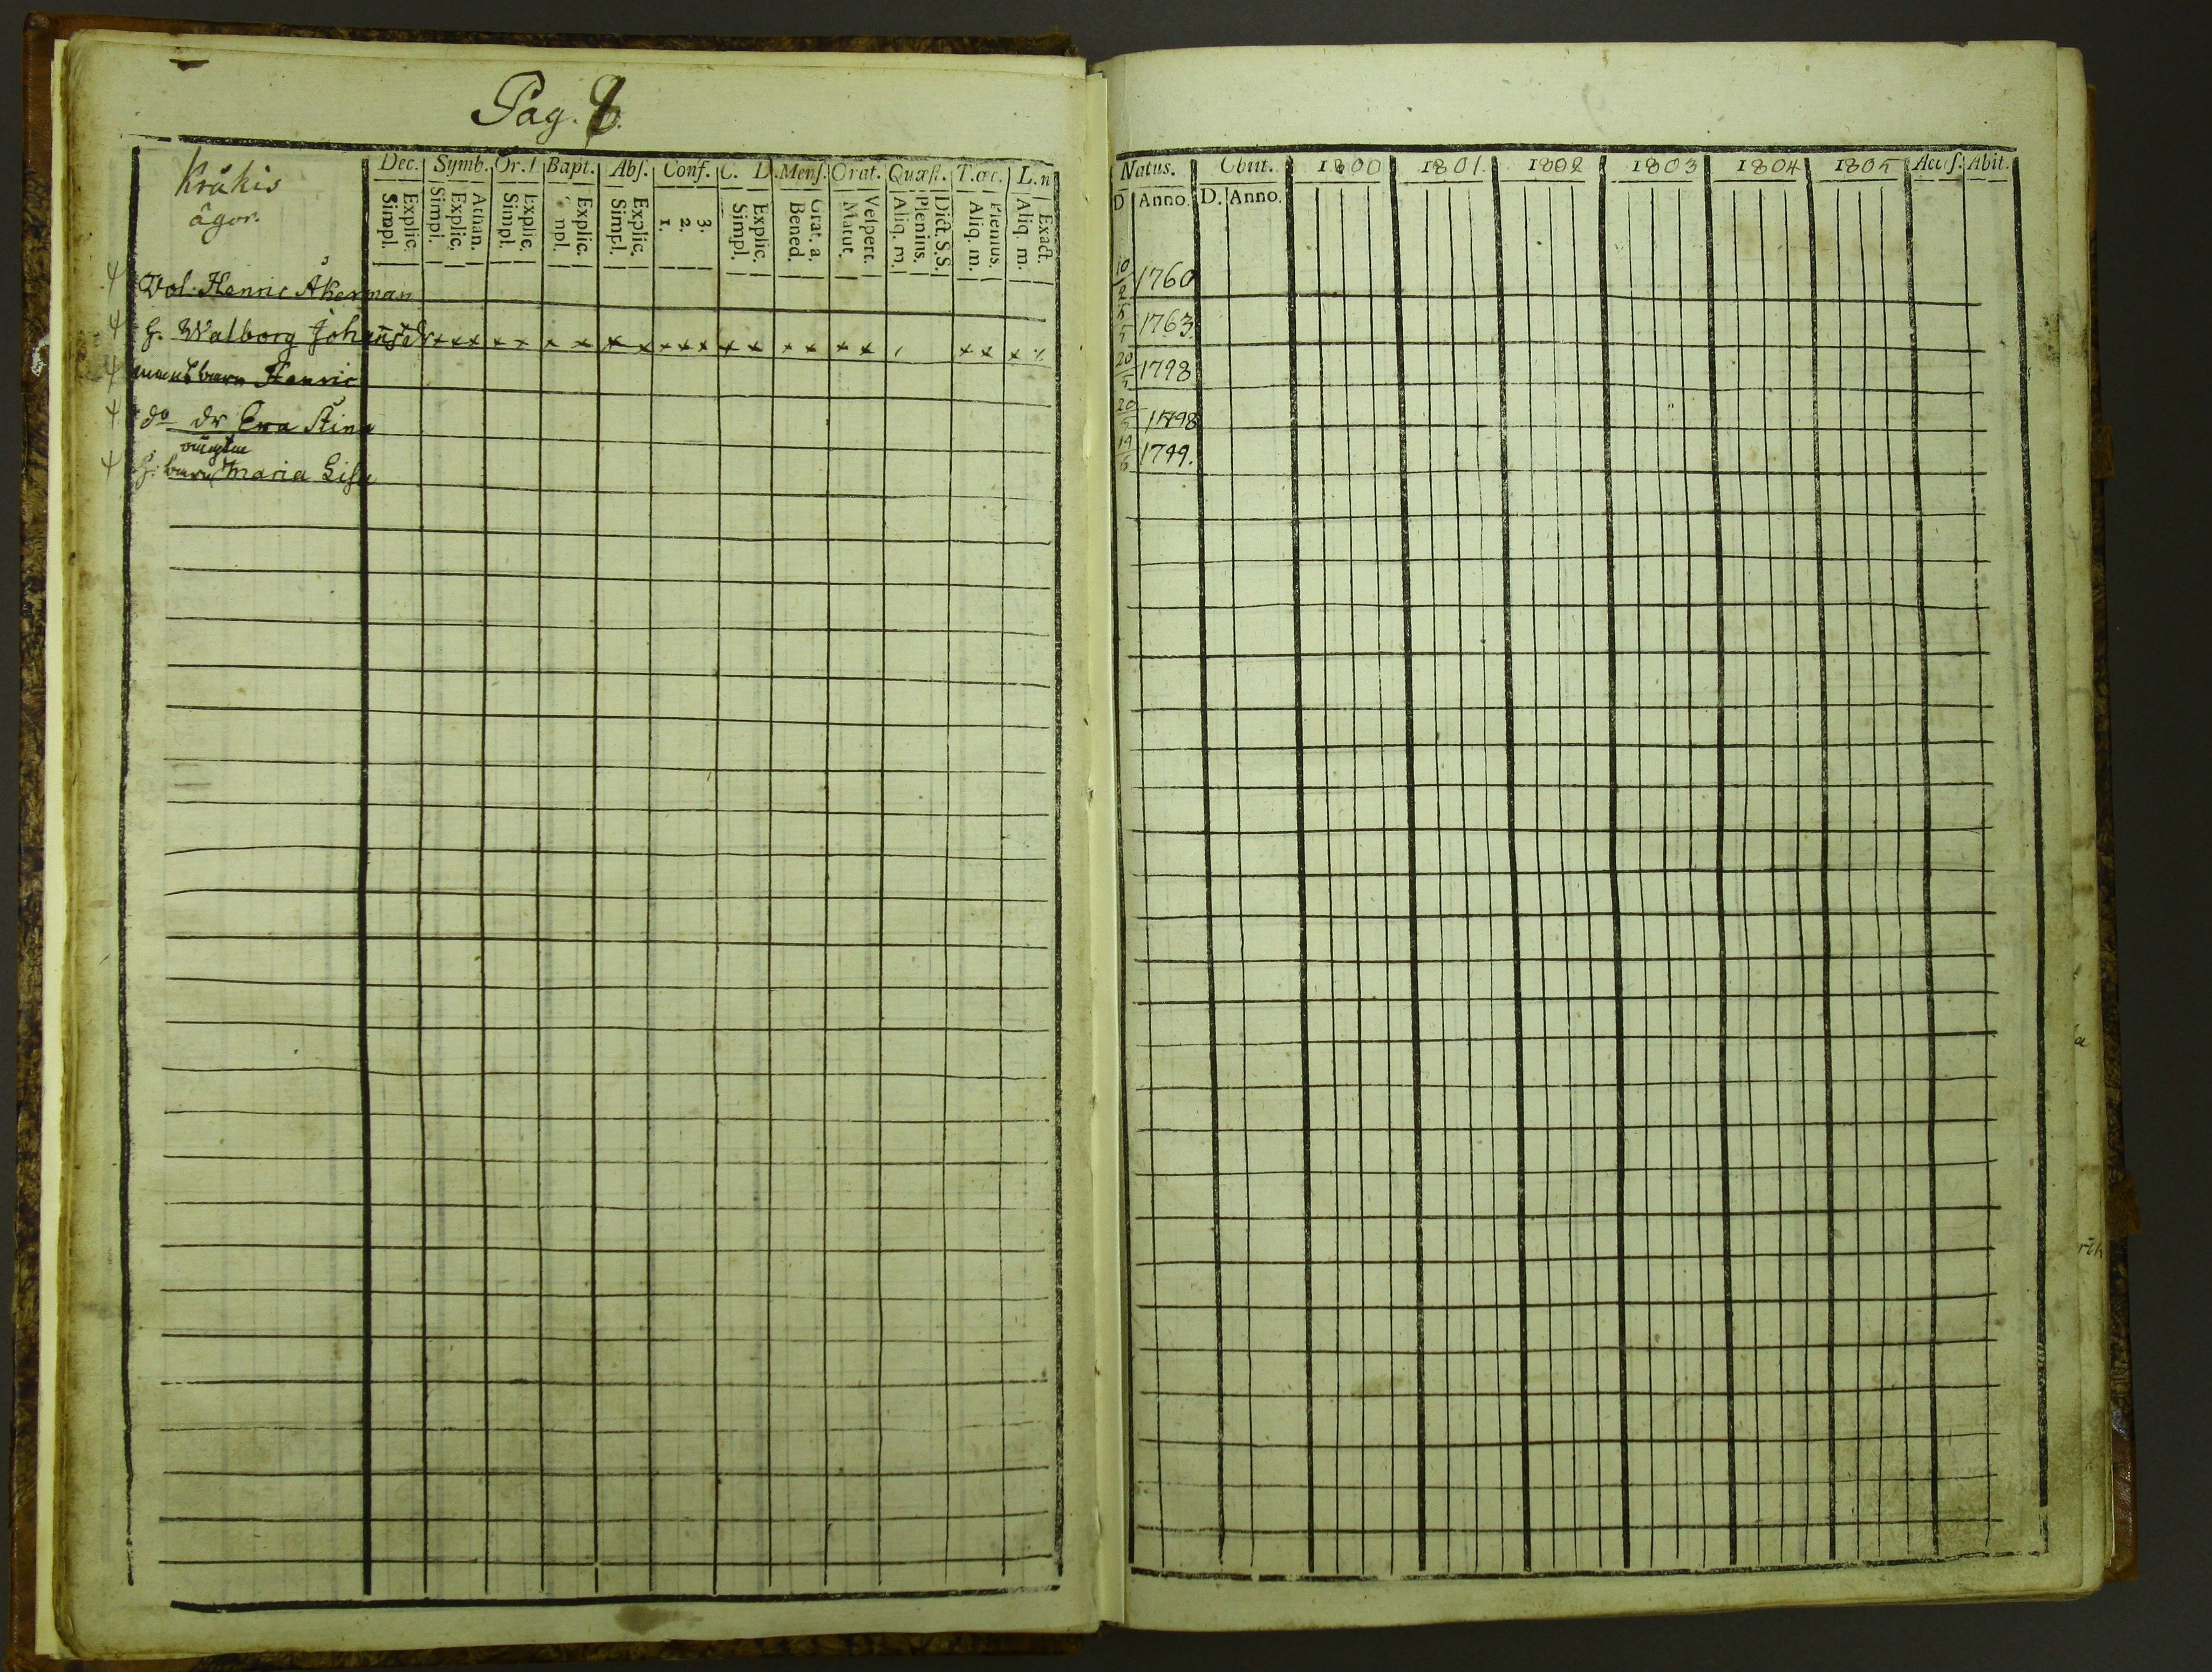 Pag. 8.
Kråkis
ägor.
Dec. Symb. Or. Bapt. Abſ. Conf. C. D. Menſ. Orat. Quæſt. T. œc. L. n
Explic. Simpl.
Athan. Explic. Simpl.
Explic. Simpl.
Explic.
Explic. Simpl.
3. 2. 1.
Explic. Simpl.
Grat. a. Bened.
Veſpert. Matut.
Dict. S. S. Plenius. Aliq. m.
Plenius. Aliq. m.
Exact. Aliq. m.
Natus. Obiit. 1800 1801 1802 1803 1804 1805 Acceſ. Abit.
D Anno. D. Anno.
Vol. Henric Åkerman 10 1760
H. Walborg Johansdr 5 1763
Henric 20/5 1798
do dr Eva Stina 20/5 1798
H. barn Maria Lisa 19/6 1799.